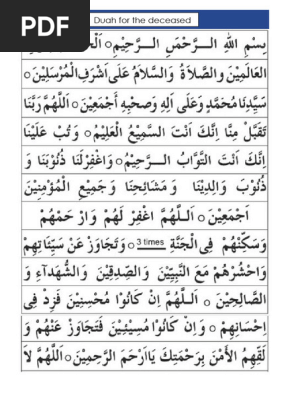 PDF
Duah for the deceased
بِسْمِ اللهِ الـرَّحْمٰنِ الـرَّحِيْمِ ○
الْعَالَمِيْنَ وَالصَّلَاةُ وَالسَّلَامُ عَلٰى اَشْرَفِ الْمُرْسَلِيْنَ ○
سَيِّدِنَا مُحَمَّدٍ وَعَلٰى اٰلِهٖ وَصَحْبِهٖ اَجْمَعِيْنَ ○ اَللّٰهُمَّ رَبَّنَا
تَقَبَّلْ مِنَّا اِنَّكَ اَنْتَ السَّمِيْعُ الْعَلِيْمُ ○ وَتُبْ عَلَيْنَا
اِنَّكَ اَنْتَ التَّوَّابُ الـرَّحِيْمُ ○ وَاغْفِرْلَنَا ذُنُوْبَنَا وَ
ذُنُوْبَ وَالِدِيْنَا وَمَشَائِخِنَا وَجَمِيْعِ الْمُؤْمِنِيْنَ
اَجْمَعِيْنَ ○ اَلـلّٰهُمَّ اغْفِرْ لَهُمْ وَارْحَمْهُمْ
وَسَكِّنْهُمْ فِى الْجَنَّةِ ○ 3 times وَتَجَاوَزْ عَنْ سَيِّئَاتِهِمْ
وَاحْشُرْهُمْ مَعَ النَّبِيِّيْنَ وَالصِّدِّقِيْنَ وَالشُّهَدَآءِ وَ
الصَّالِحِيْنَ ○ اَلـلّٰهُمَّ اِنْ كَانُوْا مُحْسِنِيْنَ فَزِدْ فِى
اِحْسَانِهِمْ ○ وَاِنْ كَانُوْا مُسِيْئِيْنَ فَتَجَاوَزْ عَنْهُمْ وَ
لَقِّهِمُ الْاَمْنَ بِرَحْمَتِكَ يَااَرْحَمَ الرَّحِمِيْنَ ○ اَللّٰهُمَّ لَا